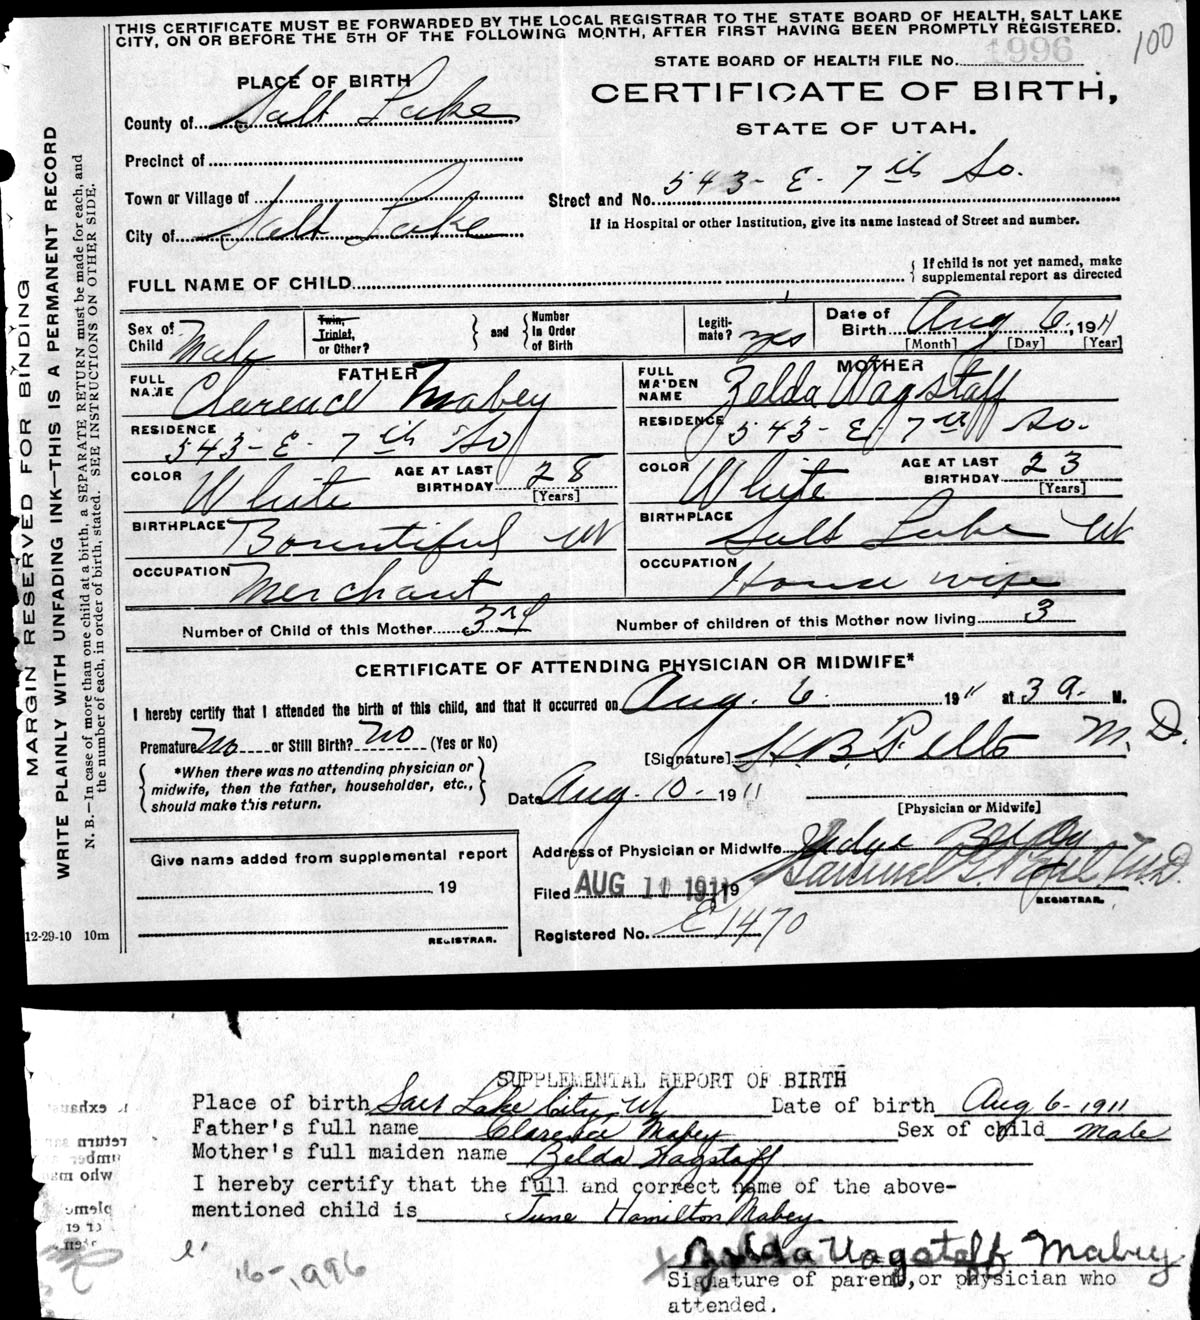 THIS CERTIFICATE MUST BE FORWARDED BY THE LOCAL REGISTRAR TO THE STATE BOARD OF HEALTH, SALT LAKE
CITY, ON OR BEFORE THE 5TH OF THE FOLLOWING MONTH, AFTER FIRST HAVING BEEN PROMPTLY REGISTERED.
100
STATE BOARD OF HEALTH FILE No. 1996
PLACE OF BIRTH
CERTIFICATE OF BIRTH,
STATE OF UTAH.
County of Salt Lake
Precinct of
Town or Village of
Street and No. 543- E- 7th So.
City of Salt Lake
If in Hospital or other Institution, give its name instead of Street and number.
FULL NAME OF CHILD
If child is not yet named, make
supplemental report as directed
Sex of Child Male
Twin, Triplet, or Other?
and
Number In Order of Birth
Legiti-mate? yes
Date of Birth Aug 6, 1911
[Month] [Day] [Year]
FATHER
FULL NAME Clarence Mabey
MOTHER
FULL MAIDEN NAME Zelda Wagstaff
RESIDENCE 543- E- 7th So
RESIDENCE 543- E- 7th So.
COLOR White
AGE AT LAST BIRTHDAY 28
[Years]
COLOR White
AGE AT LAST BIRTHDAY 23
[Years]
BIRTHPLACE Bountiful Ut
BIRTHPLACE Salt Lake Ut
OCCUPATION Merchant
OCCUPATION House wife
Number of Child of this Mother 3rd
Number of children of this Mother now living 3
CERTIFICATE OF ATTENDING PHYSICIAN OR MIDWIFE*
I hereby certify that I attended the birth of this child, and that it occurred on Aug. 6 1911 at 3 a. M.
Premature No or Still Birth? No (Yes or No)
[Signature] M. D.
*When there was no attending physician or
midwife, then the father, householder, etc.,
should make this return.
Date Aug. 10- 1911
[Physician or Midwife]
Address of Physician or Midwife Judge Bldg
Give name added from supplemental report
19
REGISTRAR.
Filed AUG 10 1911 19
REGISTRAR.
Registered No. E1470
12-29-10 10m
MARGIN RESERVED FOR BINDING
WRITE PLAINLY WITH UNFADING INK—THIS IS A PERMANENT RECORD
N. B.—In case of more than one child at a birth, a SEPARATE RETURN must be made for each, and
the number of each, in order of birth, stated. SEE INSTRUCTIONS ON OTHER SIDE.
SUPPLEMENTAL REPORT OF BIRTH
Place of birth Salt Lake City, Ut Date of birth Aug 6- 1911
Father's full name Clarence Mabey Sex of child male
Mother's full maiden name Zelda Wagstaff
I hereby certify that the full and correct name of the above-
mentioned child is June Hamilton Mabey
x Zelda Wagstaff Mabey
Signature of parent, or physician who
attended.
16-1996